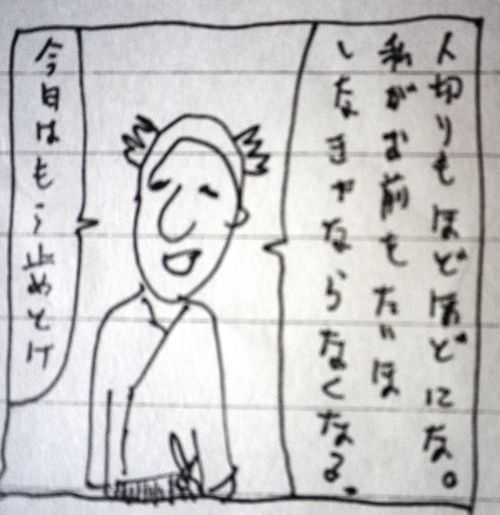 人切りもほどほどにな。
私がお前もたいほ
しなきゃならなくなる。
今日はもう止めとけ